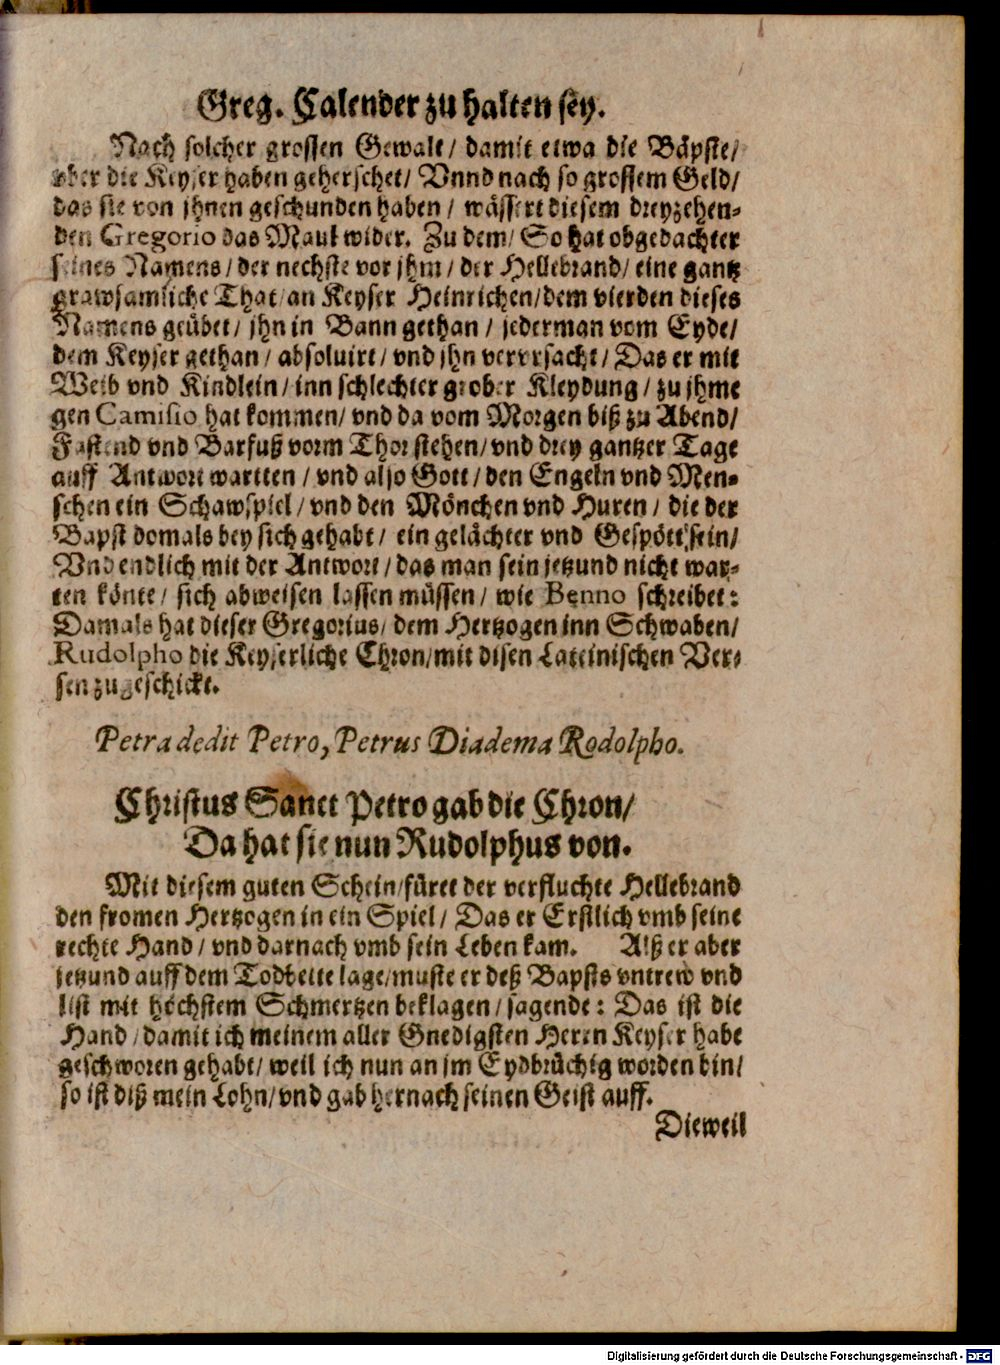 Greg. Calender zu halten sey.
Nach solcher grossen Gewalt / damit etwa die Bäpste /
vber die Keyser haben geherschet / Vnnd nach so grossem Geld /
das sie von jhnen geschunden haben / wässert diesem dreyzehen-
den Gregorio das Maul wider. Zu dem / So hat obgedachter
seines Namens / der nechste vor jhm / der Hellebrand / eine gantz
grawsamliche That / an Keyser Heinrichen / dem vierden dieses
Namens geübet / jhn in Bann gethan / jederman vom Eyde /
dem Keyser gethan / absoluirt / vnd jhn vervrsacht / Das er mit
Weib vnd Kindlein / inn schlechter grober Kleydung / zu jhme
gen Camisio hat kommen / vnd da vom Morgen biß zu Abend /
Fastend vnd Barfuß vorm Thor stehen / vnd drey gantzer Tage
auff Antwort wartten / vnd also Gott / den Engeln vnd Men-
schen ein Schawspiel / vnd den Mönchen vnd Huren / die der
Bapst domals bey sich gehabt / ein gelächter vnd Gespött sein /
Vnd endlich mit der Antwort / das man sein jetzund nicht war-
ten könte / sich abweisen lassen müssen / wie Benno schreibet :
Damals hat dieser Gregorius / dem Hertzogen inn Schwaben /
Rudolpho die Keyserliche Chron / mit disen Lateinischen Ver-
sen zugeschickt.
Petra dedit Petro, Petrus Diadema Rodolpho.
Christus Sanct Petro gab die Chron /
Da hat sie nun Rudolphus von.
Mit diesem guten Schein / füret der verfluchte Hellebrand
den fromen Hertzogen in ein Spiel / Das er Erstlich vmb seine
rechte Hand / vnd darnach vmb sein Leben kam. Alß er aber
jetzund auff dem Todbette lage / muste er deß Bapsts vntrew vnd
list mit höchstem Schmertzen beklagen / sagende : Das ist die
Hand / damit ich meinem aller Gnedigsten Herrn Keyser habe
geschworen gehabt / weil ich nun an jm Eydbrüchig worden bin /
so ist diß mein Lohn / vnd gab hernach seinen Geist auff.
Dieweil
Digitalisierung gefördert durch die Deutsche Forschungsgemeinschaft - DFG